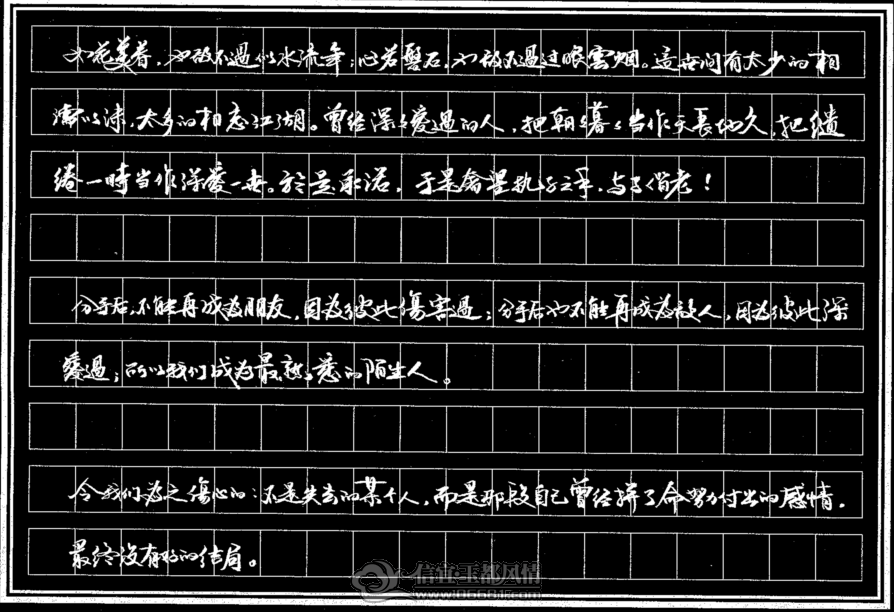 如花美眷，也敌不過似水流年；心若磐石，也敌不過过眼雲烟。這世间有太少的相
濡以沫，太多的相忘江湖。曾经深深愛過的人，把朝朝暮暮当作天長地久，把缱
绻一時当作深愛一世。於是承诺，于是奢望执子之手，与子偕老！
分手后不能再成為朋友，因為彼此傷害過；分手后也不能再成為敌人，因為彼此深
愛過；所以我们成為最熟悉的陌生人。
令我们為之傷心的：不是失去的某个人，而是那段自己曾经拼了命努力付出的感情，
最终没有好的结局。
信宜玉都风情
www.106815.com